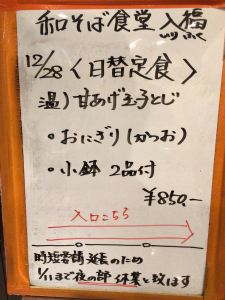 和そば食堂 入福
いり ふく
12/28 〈日替定食〉
温) 甘あげ玉子とじ
・おにぎり(かつお)
・小鉢 2品付
¥850.-
入口こちら
時短要請延長のため
1/11まで夜の部 休業と致します